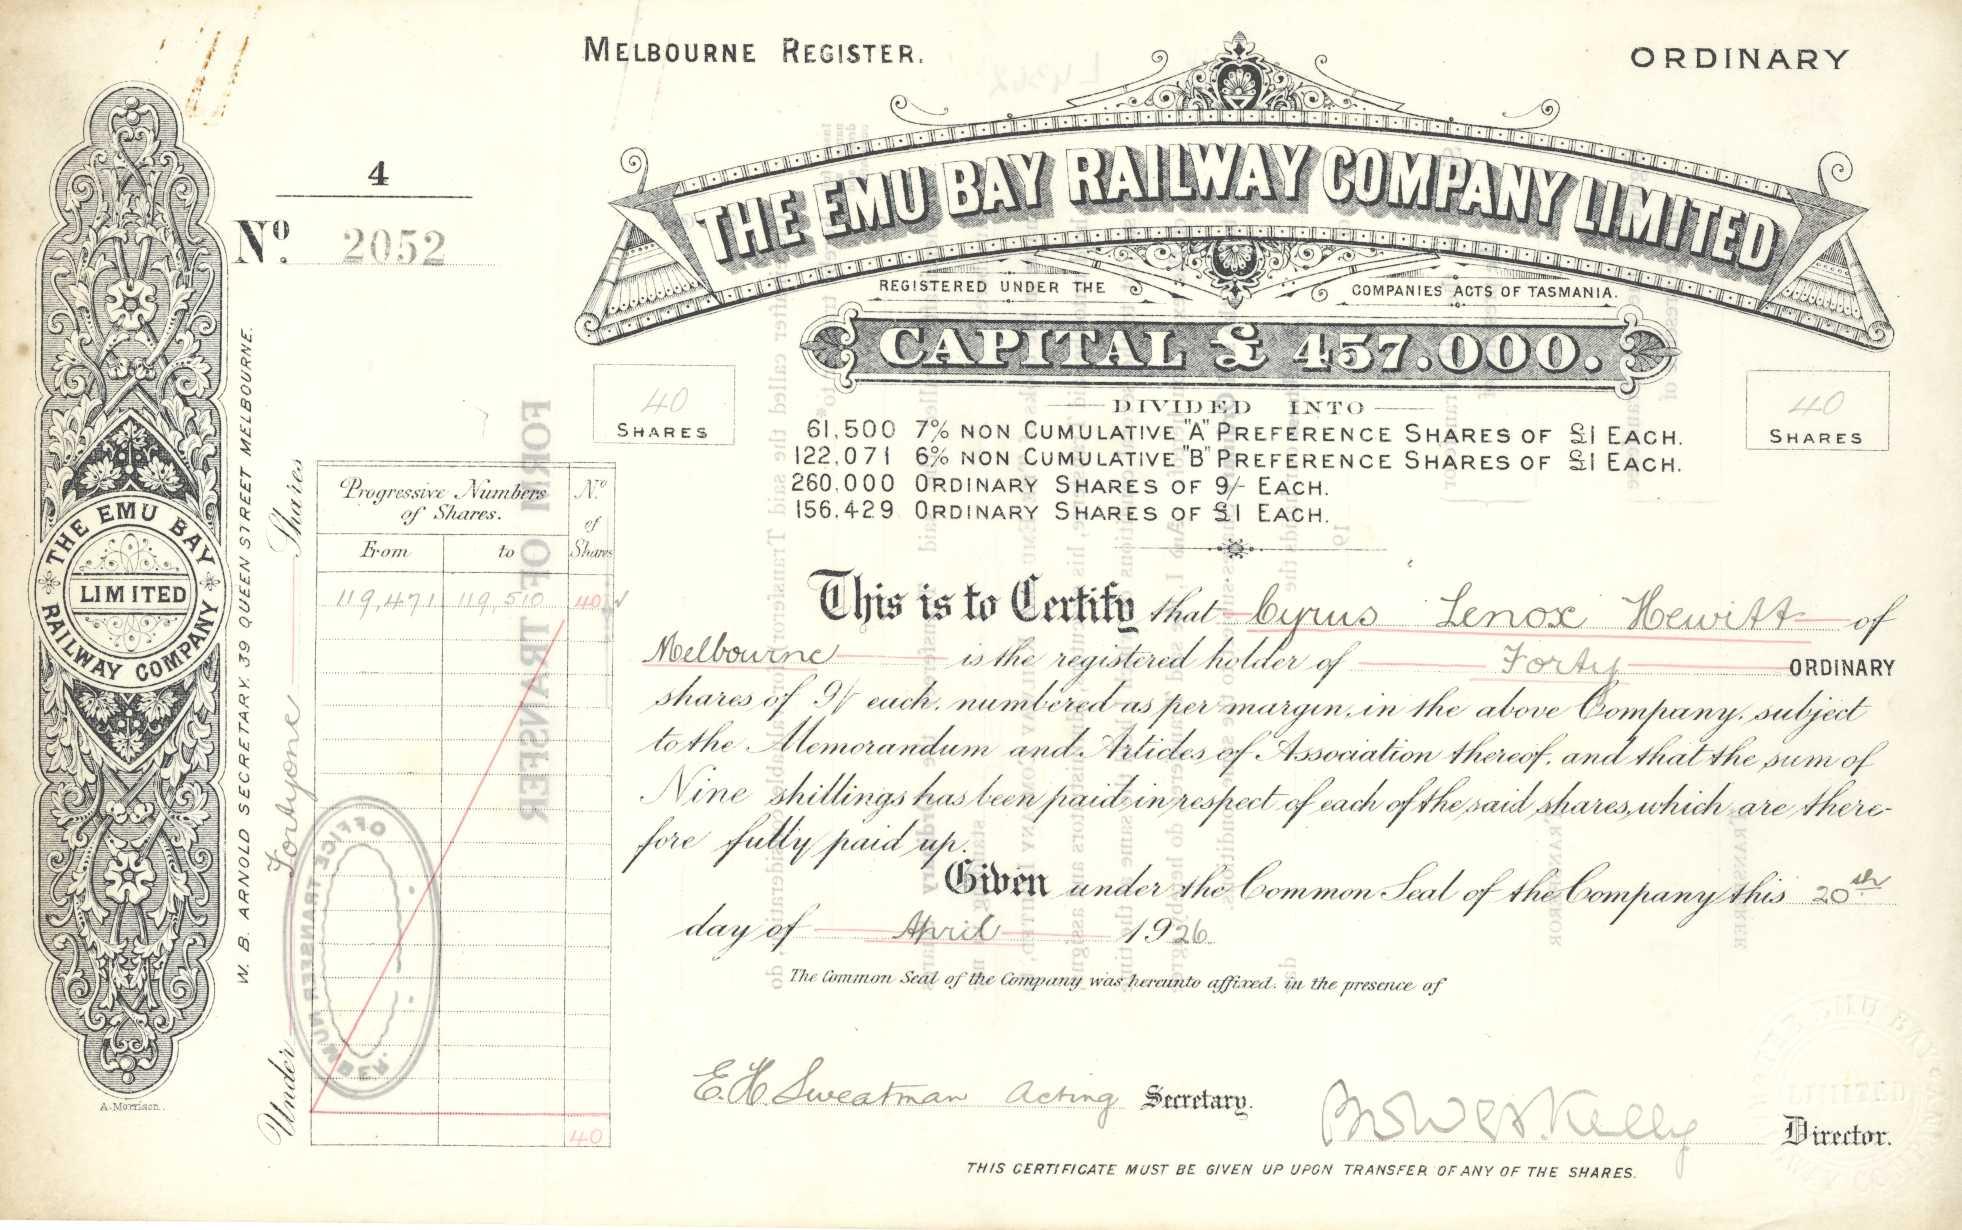 MELBOURNE REGISTER.
ORDINARY
4
No. 2052
THE EMU BAY RAILWAY COMPANY LIMITED
REGISTERED UNDER THE COMPANIES ACTS OF TASMANIA.
CAPITAL £ 457.000.
40
SHARES
40
SHARES
DIVIDED INTO
61,500 7% NON CUMULATIVE "A" PREFERENCE SHARES OF £1 EACH.
122,071 6% NON CUMULATIVE "B" PREFERENCE SHARES OF £1 EACH.
260,000 ORDINARY SHARES OF 9/- EACH.
156,429 ORDINARY SHARES OF £1 EACH.
THE EMU BAY
LIMITED
RAILWAY COMPANY
A. Morrison.
W. B. ARNOLD SECRETARY. 39 QUEEN STREET MELBOURNE.
Under Fortyone Shares
Progressive Numbers of Shares.
No. of Shares
From to
119,471 119,510 40
40
This is to Certify that Cyrus Lenox Hewitt of
Melbourne is the registered holder of Forty ORDINARY
shares of 9/- each, numbered as per margin, in the above Company, subject
to the Memorandum and Articles of Association thereof, and that the sum of
Nine shillings has been paid in respect of each of the said shares, which are there-
fore fully paid up.
Given under the Common Seal of the Company this 20th
day of April 1926
The Common Seal of the Company was hereunto affixed, in the presence of
E. H. Sweatman Acting Secretary.
Kelly Director.
THIS CERTIFICATE MUST BE GIVEN UP UPON TRANSFER OF ANY OF THE SHARES.
FORM OF TRANSFER
OFFICE TRANSFER NUMBER
THE EMU BAY
LIMITED